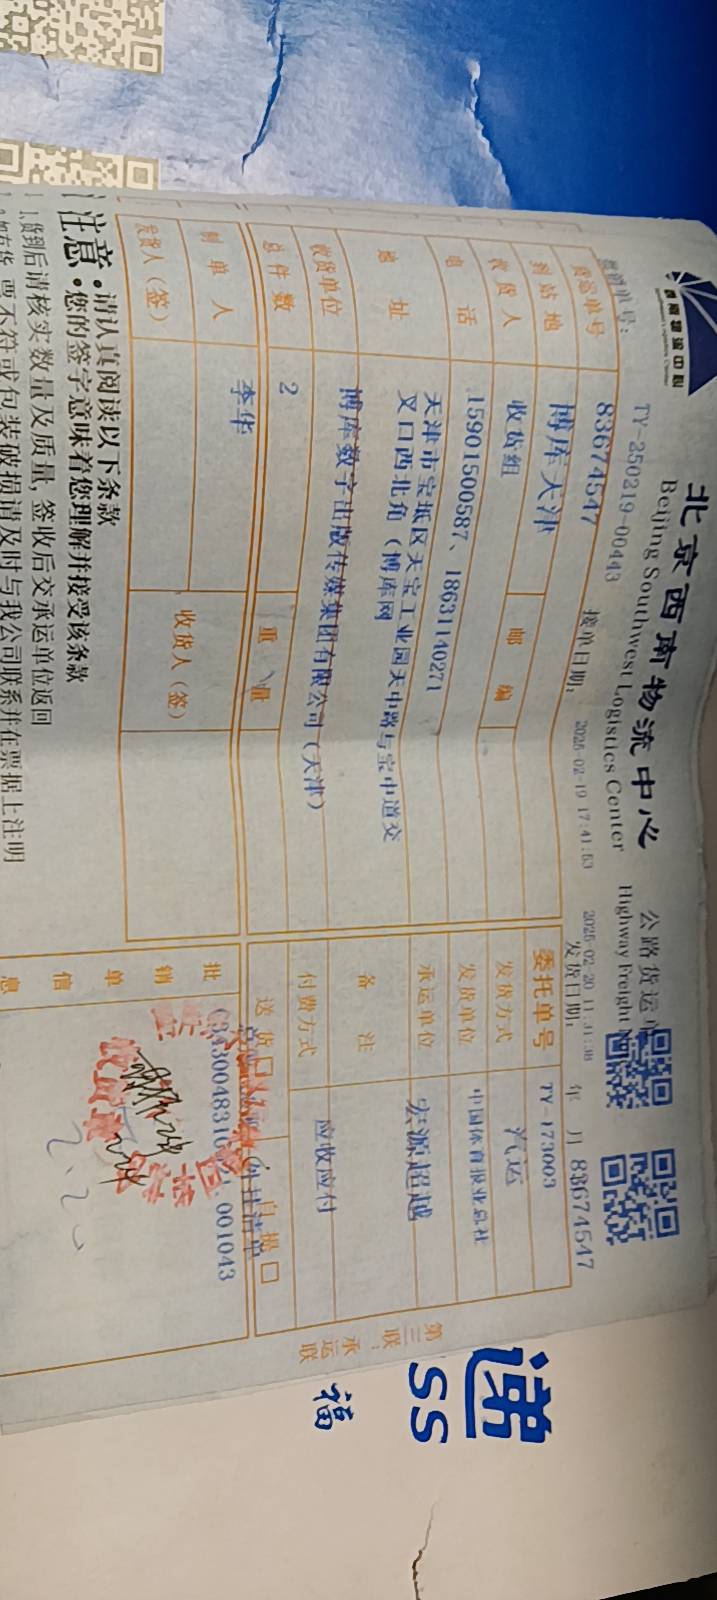 西南物流中心
Southwest Logistics Center
北京西南物流中心
Beijing Southwest Logistics Center
公路货运单
Highway Freight
TY-250219-00443
接单日期: 2025-02-19 17:41:53
发货日期: 2025-02-20 11:31:38
年 月
83674547
货运单号 83674547
委托单号 TY-173003
到站地 博库天津
邮编
发货方式 汽运
收货人 收货组
发货单位 中国体育报业总社
电话 15901500587、18631140271
承运单位 宏源超越
地址 天津市宝坻区天宝工业园天中路与宝中道交
叉口西北角(博库网
备注
收货单位 博库数字出版传媒集团有限公司(天津)
付费方式 应收应付
总件数 2
重量
送货□
自提□
制单人 李华
收货人(签)
发货人(签)
批销单信息
001043
第三联:承运联
注意:
·请认真阅读以下条款
·您的签字意味着您理解并接受该条款
1.货到后请核实数量及质量,签收后交承运单位返回
票不符或包装破损请及时与我公司联系并在票据上注明
递
SS
福